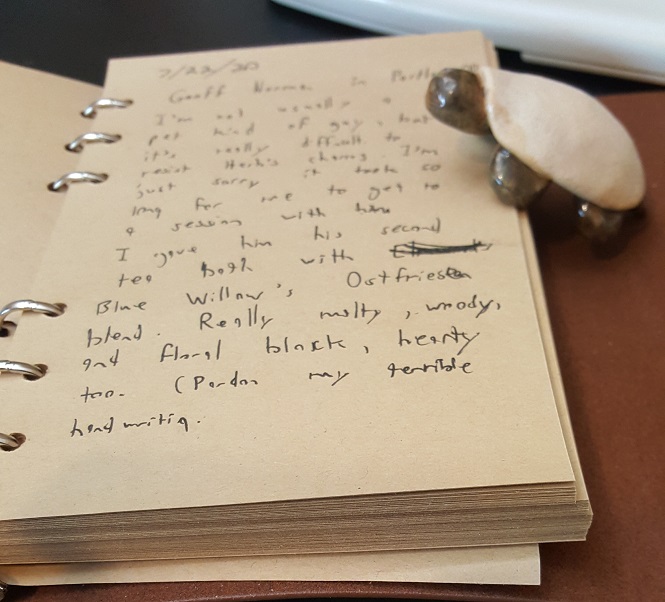 7/23/20
Geoff Norman in Portland, OR
I'm not usually a
pet kind of guy, but
it's really difficult to
resist Herb's charms. I'm
just sorry it took so
long for me to get to
a session with him
I gave him his second
tea bath with
Blue Willow's Ostfriesen
blend. Really malty, woody,
and floral black, hearty
too. (Pardon my terrible
handwriting.